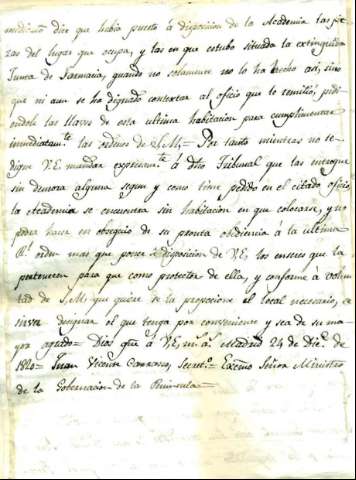 medicina dice que había puesto á disposicion de la Academia las pie-
zas del lugar que ocupa, y las en que estubo situada la extinguida
Junta de Farmacia, quando no solamente no lo ha hecho así, sino
que ni aun se ha dignado contextar al oficio que le remitió, pidi-
endole las llaves de esta ultima habitacion para cumplimentar
inmediatam.te las ordenes de S.M.= Por tanto mientras no se
digne V.E. mandar expresam.te á dho Tribunal que las entregue
sin demora alguna segun y como tiene pedido en el citado oficio
la Academia se encuentra sin habitacion en que colocarse, y no
podra hacer en obsequio de su pronta obediencia á la ultima
R.l orden mas que poner á disposicion de V.E. los enseres que la
pertenecen para que como protector de ella, y conforme á volun-
tad de S.M. que quiere se la proporcione el local necesario, se
sirva designar el que tenga por conveniente y sea de su ma-
yor agrado= Dios gue á V.E. m.s a.s Madrid 24 de Dic.e de
1820= Juan Vicente Carrasco, Secret.o= Excmo Señor Ministro
de la Gobernacion de la Peninsula=